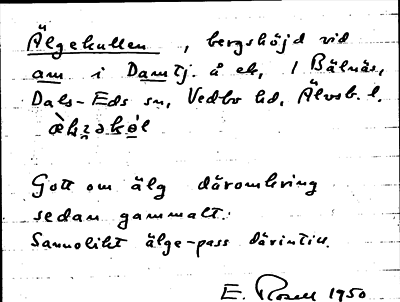 Älgekullen, bergshöjd vid
am i Damtj. å ek, 1 Bälnäs,
Dals-Eds sn, Vedbo hd, Älvsb. l.
Gott om älg däromkring
sedan gammalt.
Sannolikt älge-pass därintill.
E. Rosell 1950